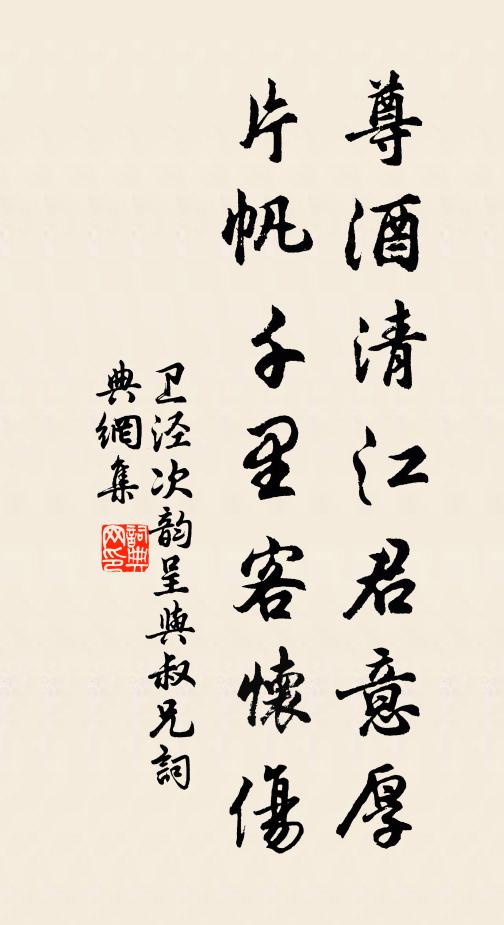 尊酒清江君意厚
片帆千里客懷傷
卫泾次韵呈與叔兄詞
典網集
詞典网印